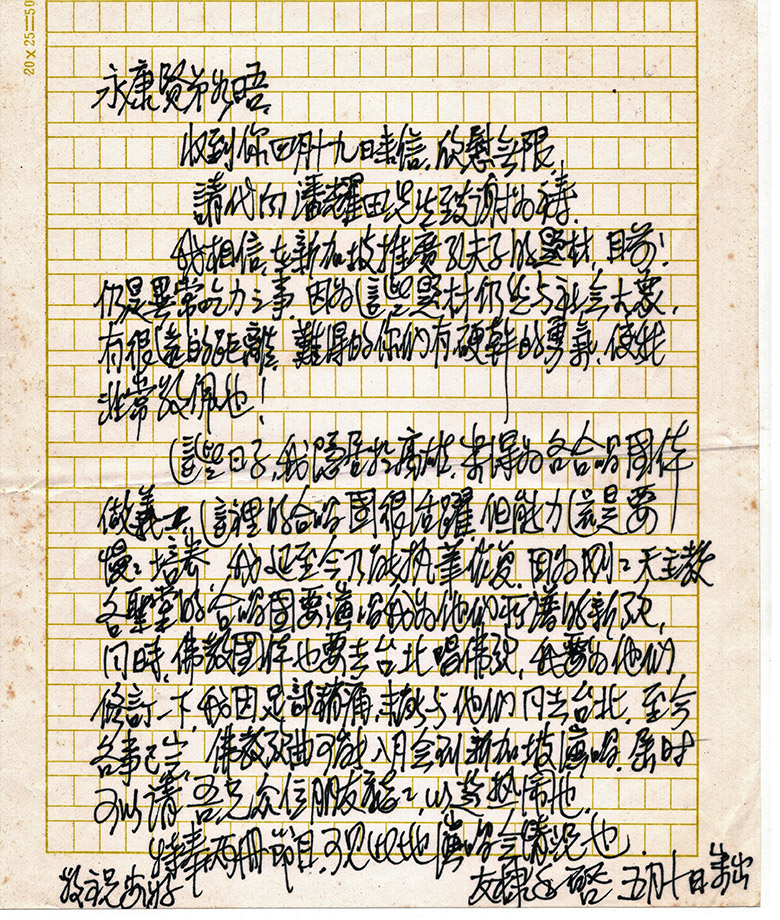 20×25=50
永康賢弟如晤
收到你四月十九日來信,欣慰無限,
請代向潘耀田先生致謝為禱.
我相信,在新加坡推廣孔夫子的題材,目前!
仍是異常吃力之事,因為這些題材仍然與社會大衆,
有很遠的距離,難得的你們有硬幹的勇氣,使我
非常敬佩也!
這些日子,我隱居於高雄,為各合唱團体
做義工,這裡的合唱團很活躍,但能力還是要
慢慢培養,我延至今乃能执筆作复,因為刚刚天主教
各聖堂的合唱團要演唱我為他們所譜的新歌,
同時,佛教團体也要去台北唱佛歌,我要為他們
修訂一下,我因足部稍痛,未与他們同去台北,至今
各事已完,佛教歌曲可能八月会到新加坡演唱,屆時
可以請吾兄众位朋友,以趁热鬧也.
特奉两冊節目,可見此地演唱会情況也.
敬祝安好
友棣手啓 五月十日